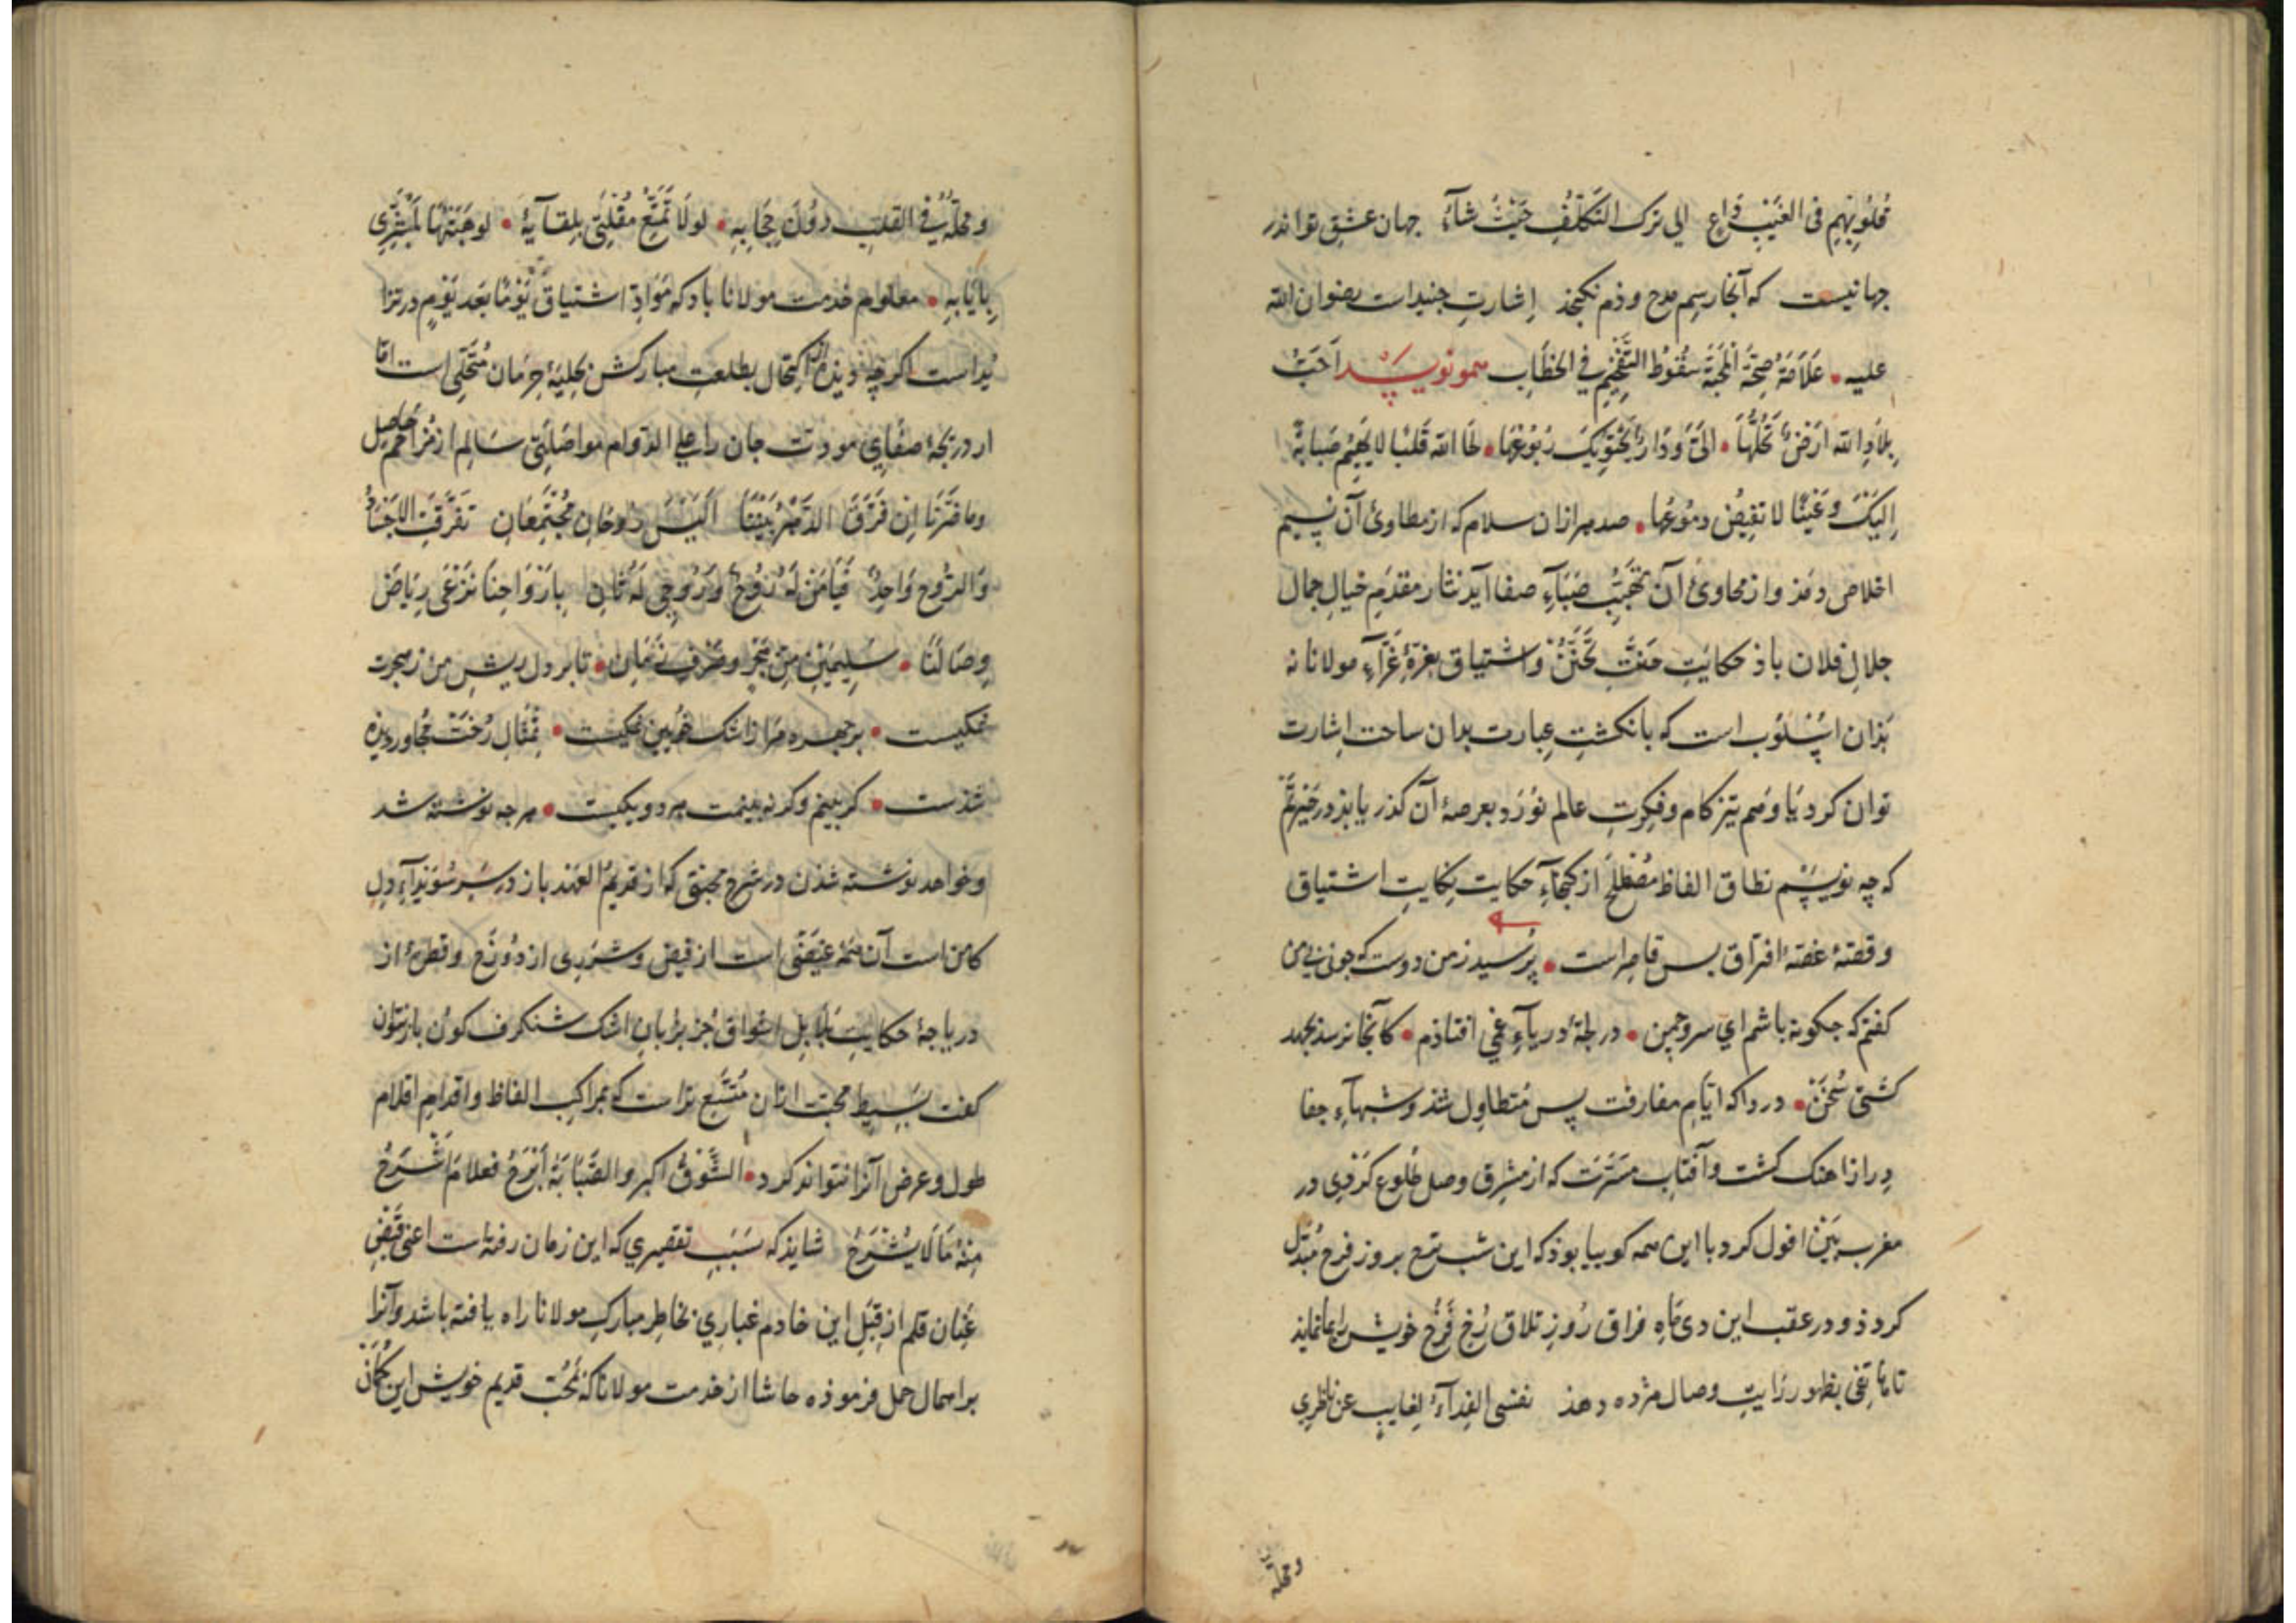 قُلُوبِهِم فی الغَیبِ دَاعٍ الی ترک التَکَلُّفِ حَیثُ شآءَ جهان عشق تو اندر
جهانیست که آنجا رسم مدح و ذم نکنجذ اِشارتِ جنیداست رضوان الله
علیه • عَلَامَةُ صِحَّةِ المحَبَّةِ سُقُوطُ التَّفْخِیمِ فی الخِطَابِ همو نویسد اَحَبُّ
بِلَادِ الله اَرضٌ تَحُلُّهَا • الیَّ وَ دَارٌ تحْتَوِیکَ رُبُوعُهَا • لحَا الله قَلبًا لا یَهِیمُ صَبَابَةً
اِلَیکَ وَ عَینًا لا تَفِیضُ دمُوعُها • صد هزاران سلام که از مطاوئ آن نسیم
اخلاص دمذ و از محاوئ آن تهبُّ صَبَآءِ صفا آید نثار مقدَمِ خیالِ جمال
جلالِ فلان باذ حکایتِ تَحَنُّنْ و اشتیاق بغرّهٔ غَرّآءِ مولانا نه
بَذان اسْلوُب است که بانکشتِ عِبارت بدان ساحت اِشارت
توان کرد یَا وَهم تیز کام و فِکرتِ عالم نَوَرْد بعرصهٔ آن گذر یابذ در حَیرتَم
که چه نویسَم نطاق الفاظ از کجاءِ حکایت نکایتِ اشتیاق
و قصّهٔ غصّهٔ افتراق بس قاصِراست • پُرسید ز من دوست که چونی بی من
کفتم که جکونه باشم ای سرو چمن • در لجّهٔ دریآءِ غمی افتاذم • کانجا نرسذ بجهد
کشتیِّ سُخَنْ • دردا که ایّامِ مفارقت پس مُتطاوِل شذ و شبهآءِ جفا
دِراز اهنک کشت و آفتابِ مسَرّت که از مشرق وصل طُلوع کَردی در
مغربِ بَیْن افول کرد با این همه کوییا بوذ که این شب ترح بروز فرح مُبَدّل
کردذ و در عقب این دی مَاهِ فراق رُوزِ تلاق رُخِ فَرُّخِ خویش را بنماید
تا هاتفی بظهور رایتِ وصال مژده دهذ نفسی الفِدآءُ لِغایبٍ عن نَاظِرِی
ومحلّه
ومحلّهُ فی القلبِ دوُنَ حِجَابِهِ • لولَا تَمَتُّعُ مُقْلَتِی بِلِقآیِهِ • لوهَبْتُهَا لمُبَشِّرِی
بِاِیَابِهِ • معلوم خدمت مولانا باد که مَوَادِّ اشتیاق یَوْمًا بَعدَ یَوْمٍ در تزا
یُد است اکر چه دیذه از اکتحال بطلعتِ مبارکش بحلیهٔ حِرْمان مُتَحَلّی است امّا
از دریجهٔ صفایِ مودّت جان را علی الدّوام مواصَلَتی سَالِم از مُزاحم حَاصِل
وما ضَرَّنَا اِن فَرَّقَ الدَّهْرُ بَیْنَنَا اَلَیْسَ رُوحَانِ مجُْتَمِعَانِ تَفَرَّقَتِ الاَجْسَادُ
وَالرُّوحُ وَاحِدٌ فَیَا مَنْ لَهُ رُوحٌ وَ رُوحِی لَهُ ثَانٍ بِاَرْوَاحِنَا نَرْعَی رِیَاضَ
وِصَالنَا • سَلِیمَیْنِ مِنْ هَجْرٍ و صَرْفِ زَمَانِ • تا بر دل ریش من ز هجرت
نمکیست • بر جهره مرا ز اشک خونین نمکیست • تِمْثَالِ رُخَت مجُاور دیذه
شذست • کر بینم و کر نه بینمت هر دو یکیست • هر جه نوشته شد
و خواهد نوشته شذن در شرح محبّتی که از قدیم العَهد باز در سِرِّ سُوَیْدآءِ دل
کامن است آن همه غیضی است از فیض و شَرَری از دُوزَخ و قطرهٔ از
دریا جهٔ حکایتِ بَلَابِلِ اشواق جُز بزبانِ اشک شنکرف کون باز نتوان
کفت بَسِیطِ محبّت از ان مُتّسِع تراست که بمراکبِ الفاظ و اقدامِ اقلام
طول و عرض آنرا نتواند کرد • الشَّوْقُ اکبر والصَّبَابَةُ اَبْرَحُ فعلامَ اَشْرَحُ
مِنْهُ مَا لَا یُشْرَحُ شایذ که سَبَبِ تقصیری که این زمان رفتهاست اعنی قَبْضِ
عَنِان قلم از قِبَل این خادم غباری بخاطِر مبارکِ مولانا راه یافته باشد وآنرا
بر اهمال حمل فرموذه حاشا از خدمت مولانا که بمُحبّ قدیم خویش این کُمان